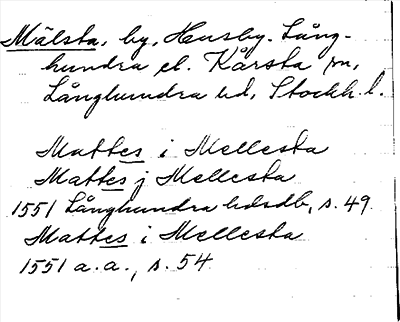 Mälsta, by, Husby-Lång-
hundra el. Kårsta sn,
Långhundra hd, Stockh. l.
Mattes i Mellesta
Mattes j Mellesta
1551 Långhundra hdsdb, s. 49
Mattes i Mellesta
1551 a.a., s. 54